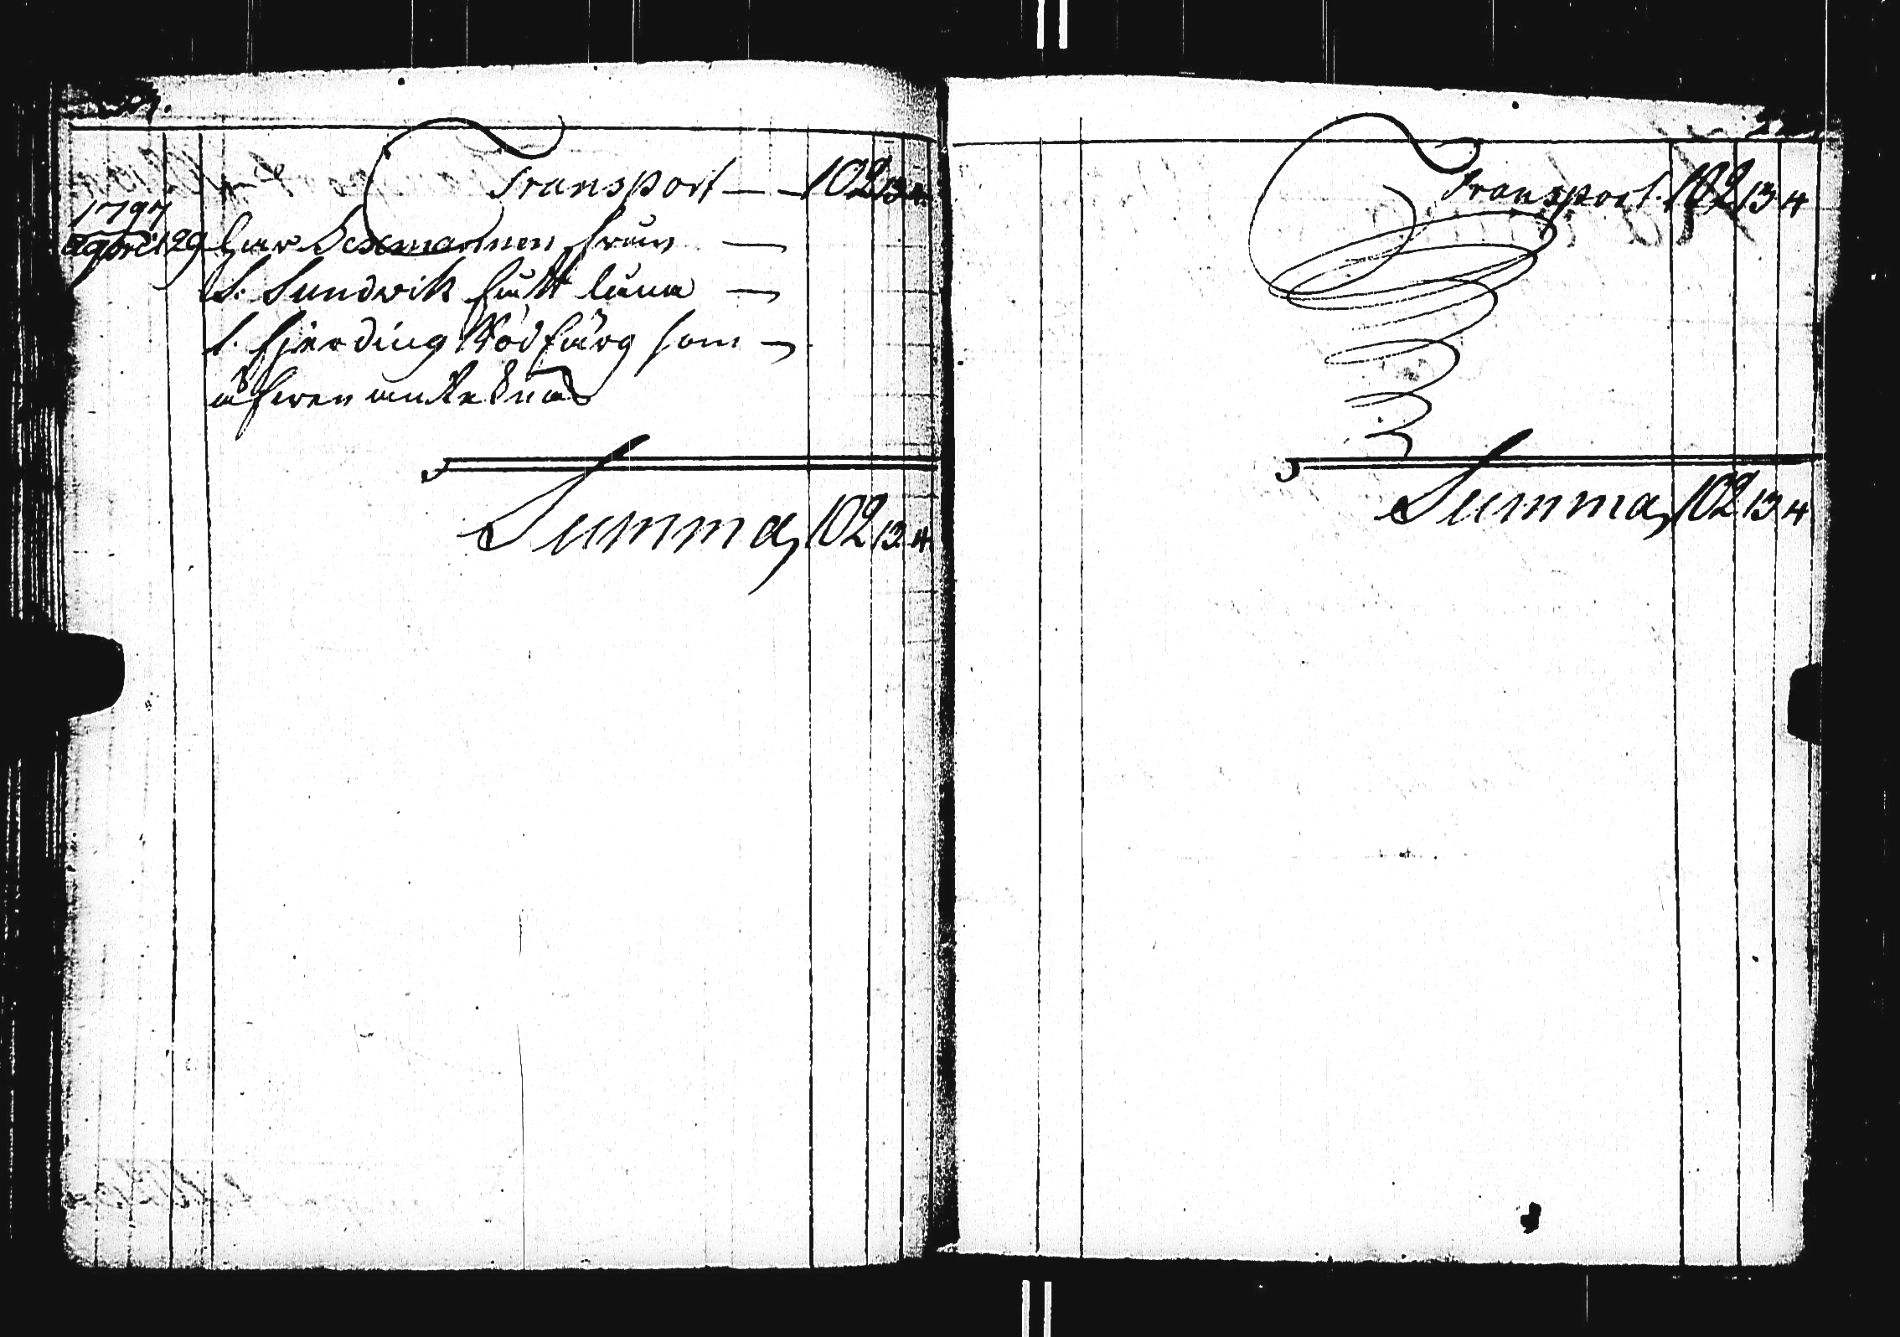 Transport — — 102 13 4
1797
April 29 har Sexmannen från
S. Sundvik fått låna
1. fjerding Röd färg som
Summa 102 13 4
Transport. 102 13 4
Summa 102 13 4